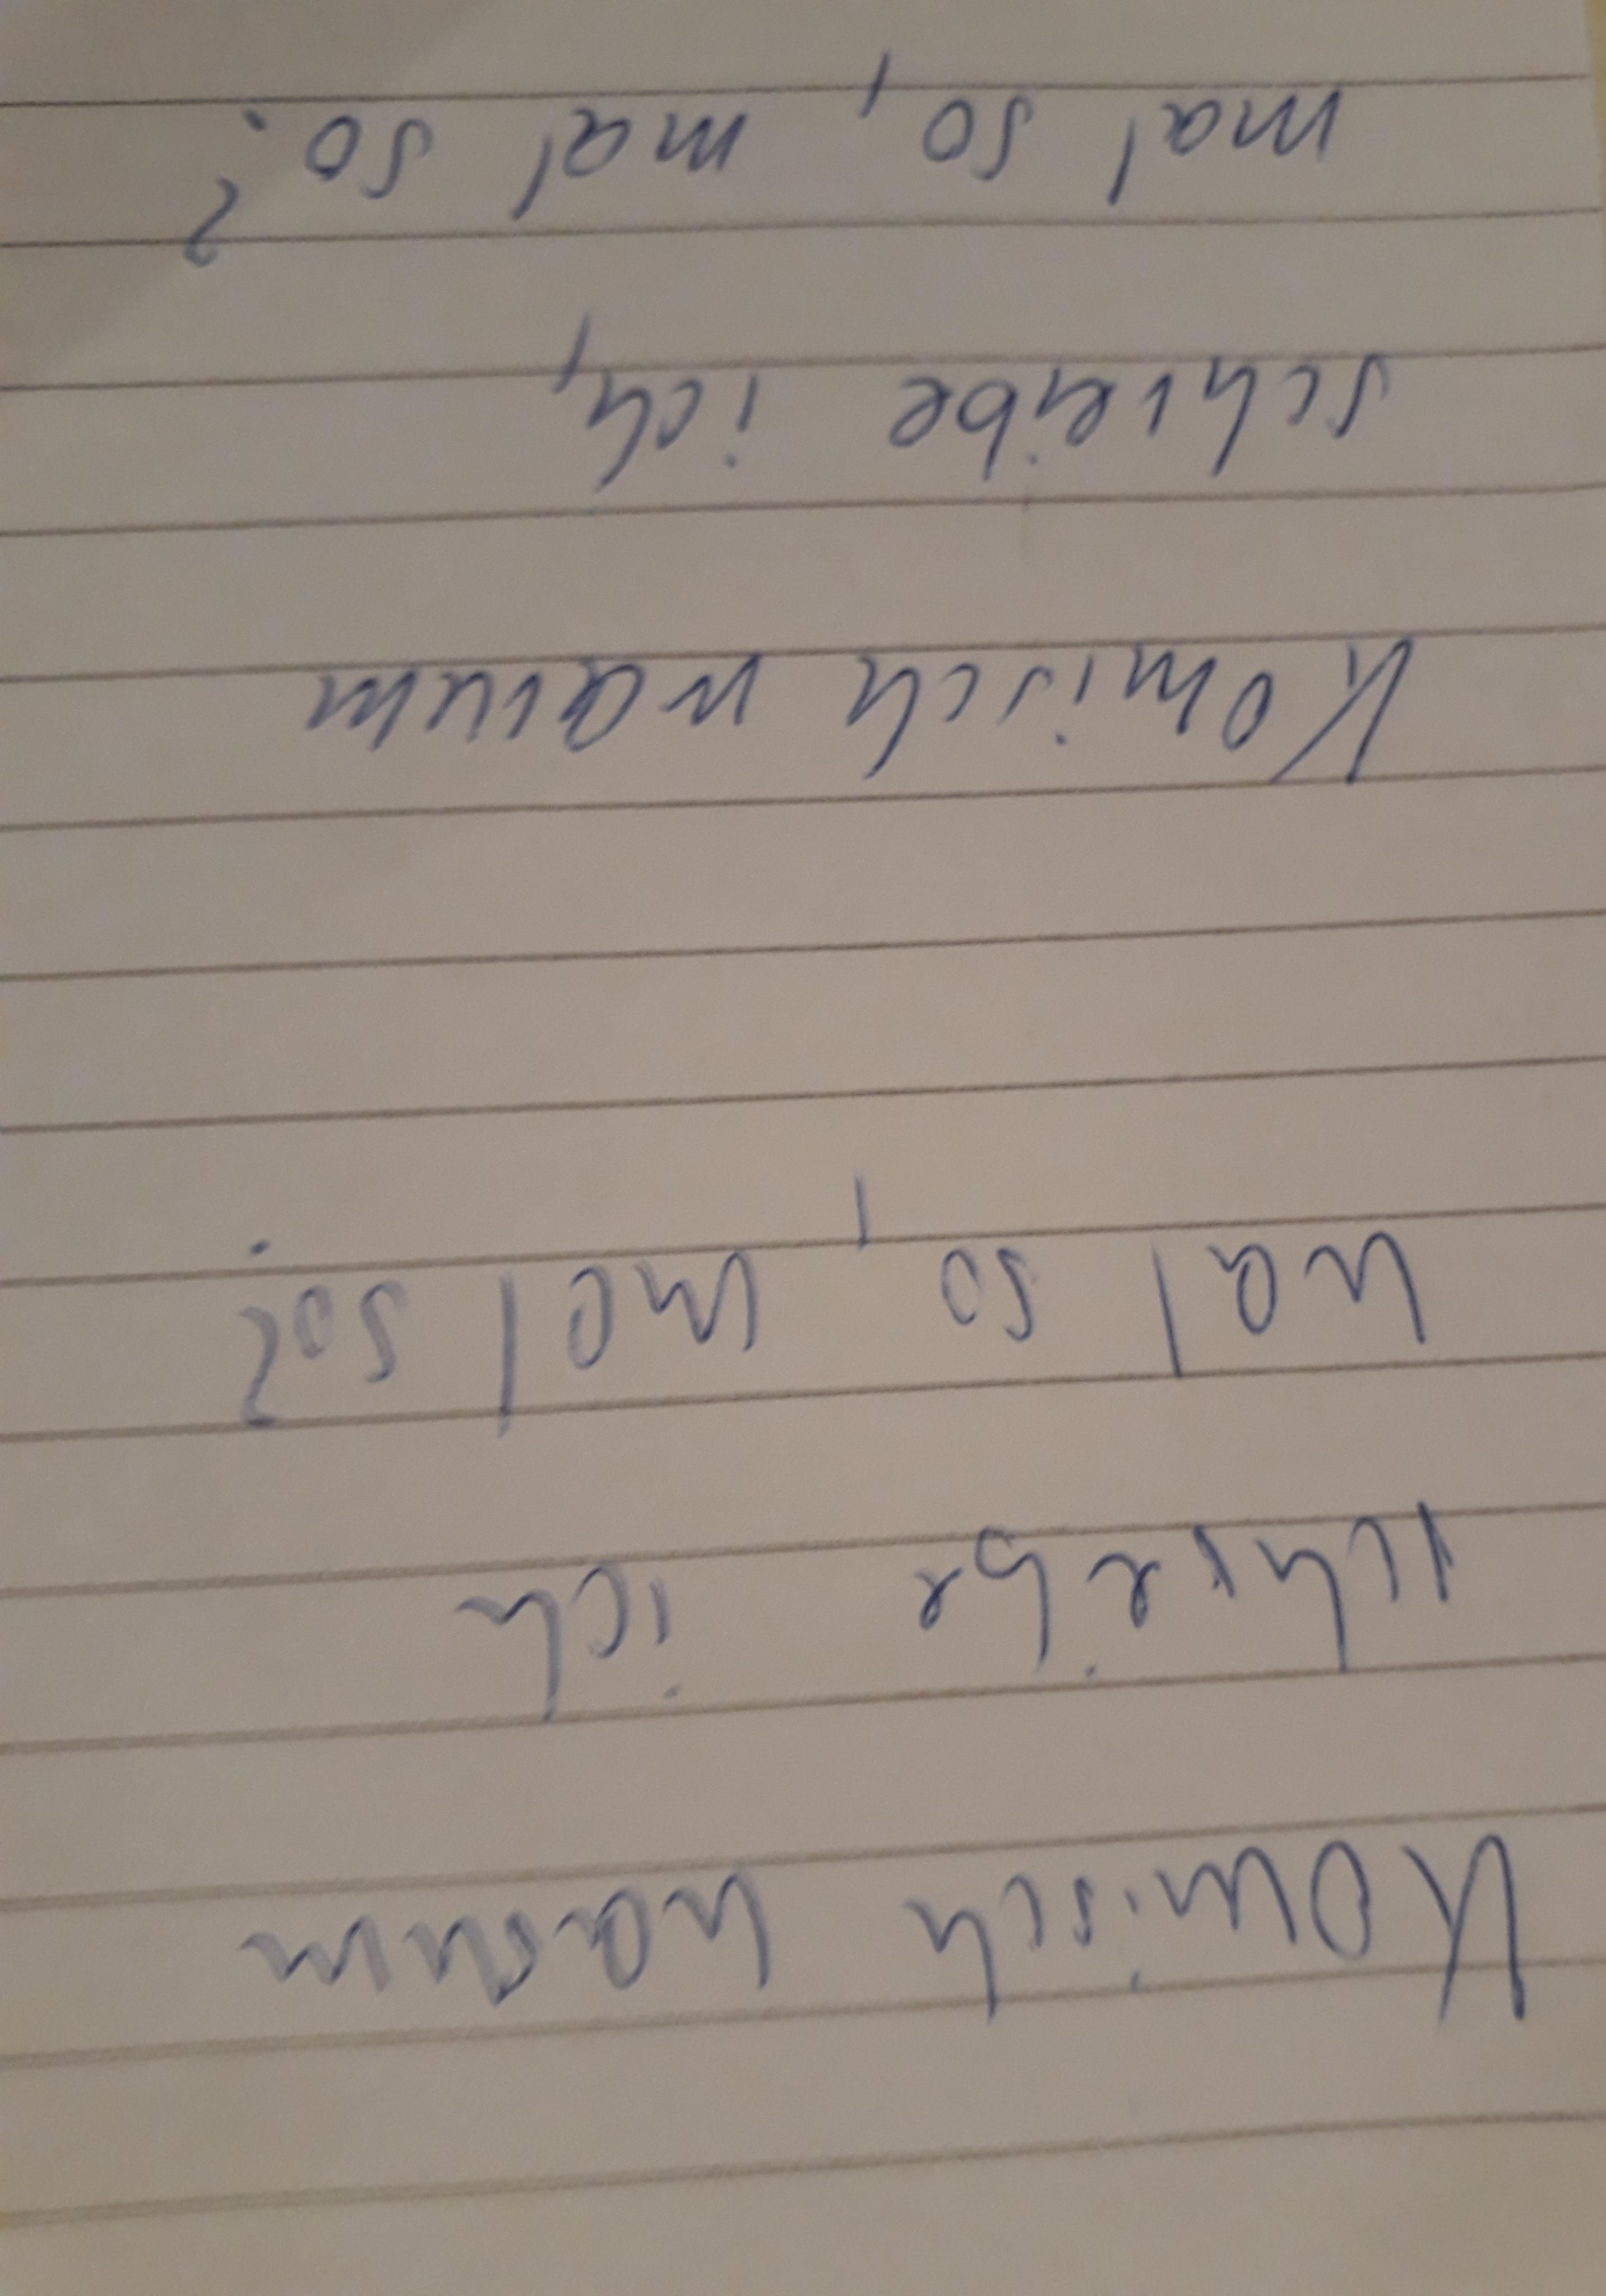 Komisch warum
schreibe ich
mal so, mal so?
Komisch warum
schreibe ich,
mal so, mal so?